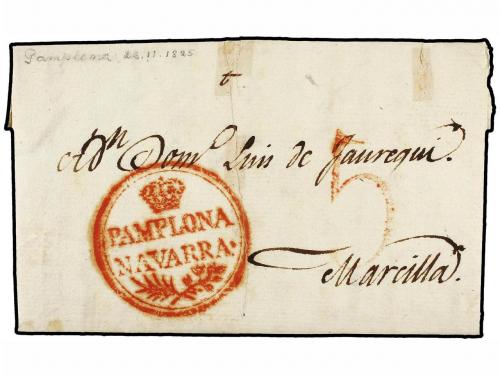 Pamplona 28.11.1825
A Dn. Domo. Luis de Jauregui.
5
PAMPLONA
NAVARRA.
Marcilla.